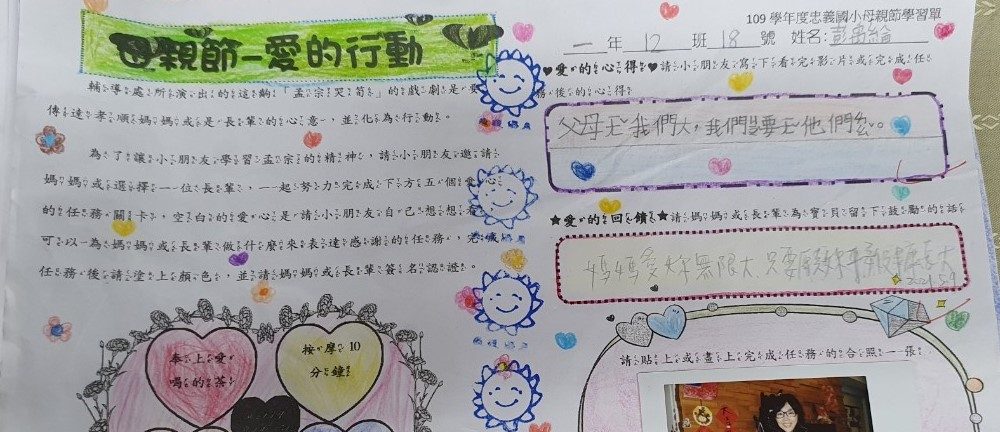 109 學年度忠義國小母親節學習單
母親節－愛的行動
一 年 12 班 18 號 姓名:
輔導處所演出的這齣「孟宗哭筍」的戲劇是
傳達孝順媽媽或是長輩的心意，並化為行動。
為了讓小朋友學習孟宗的精神，請小朋友邀請
媽媽或選擇一位長輩，一起努力完成下方五個愛心
的任務關卡，空白的愛心是請小朋友自己想想看
可以為媽媽或長輩做什麼來表達感謝的任務，完成
任務後請塗上顏色，並請媽媽或長輩簽名認證。
奉上愛
喝的茶
按摩 10
分鐘
♥愛的心得♥請小朋友寫下看完影片或完成任
務後的心得
父母ㄧㄤ我們大，我們要ㄧㄤ他們ㄌㄠ。
★愛的回饋★請媽媽或長輩為寶貝留下鼓勵的話
媽媽愛妳無限大，只要
請貼上或畫上完成任務的合照一張